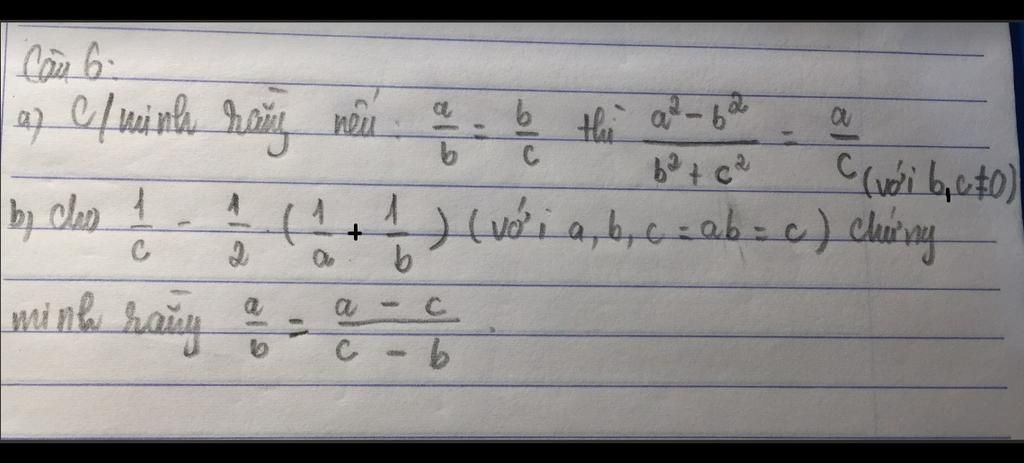 Câu 6:
a) C/minh rằng nếu: a/b = b/c thì (a² - b²)/(b² + c²) = a/c (với b, c ≠ 0)
b) cho 1/c - 1/2 . (1/a + 1/b) (với a, b, c = ab = c) chứng
minh rằng a/b = (a - c)/(c - b).